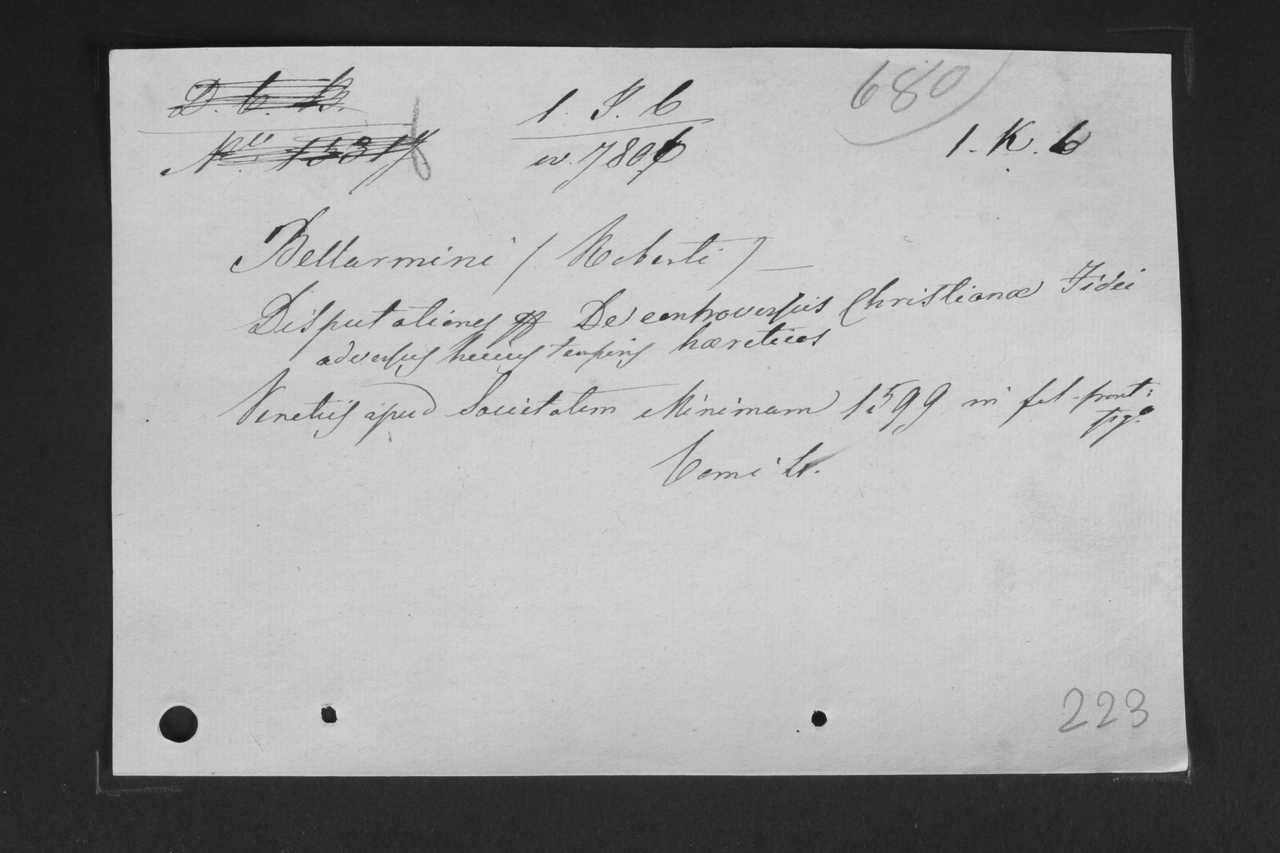 D. C. B. 1. I. 6 680
N.ro 1331 1. K. 6
Bellarmini (Roberti) —
Disputationes De controversiis Christianæ Fidei
adversus huius temporis hæreticos
Venetiis apud Societatem Minimam 1599 in fol. front:
fig.o
Tomi 4.
223